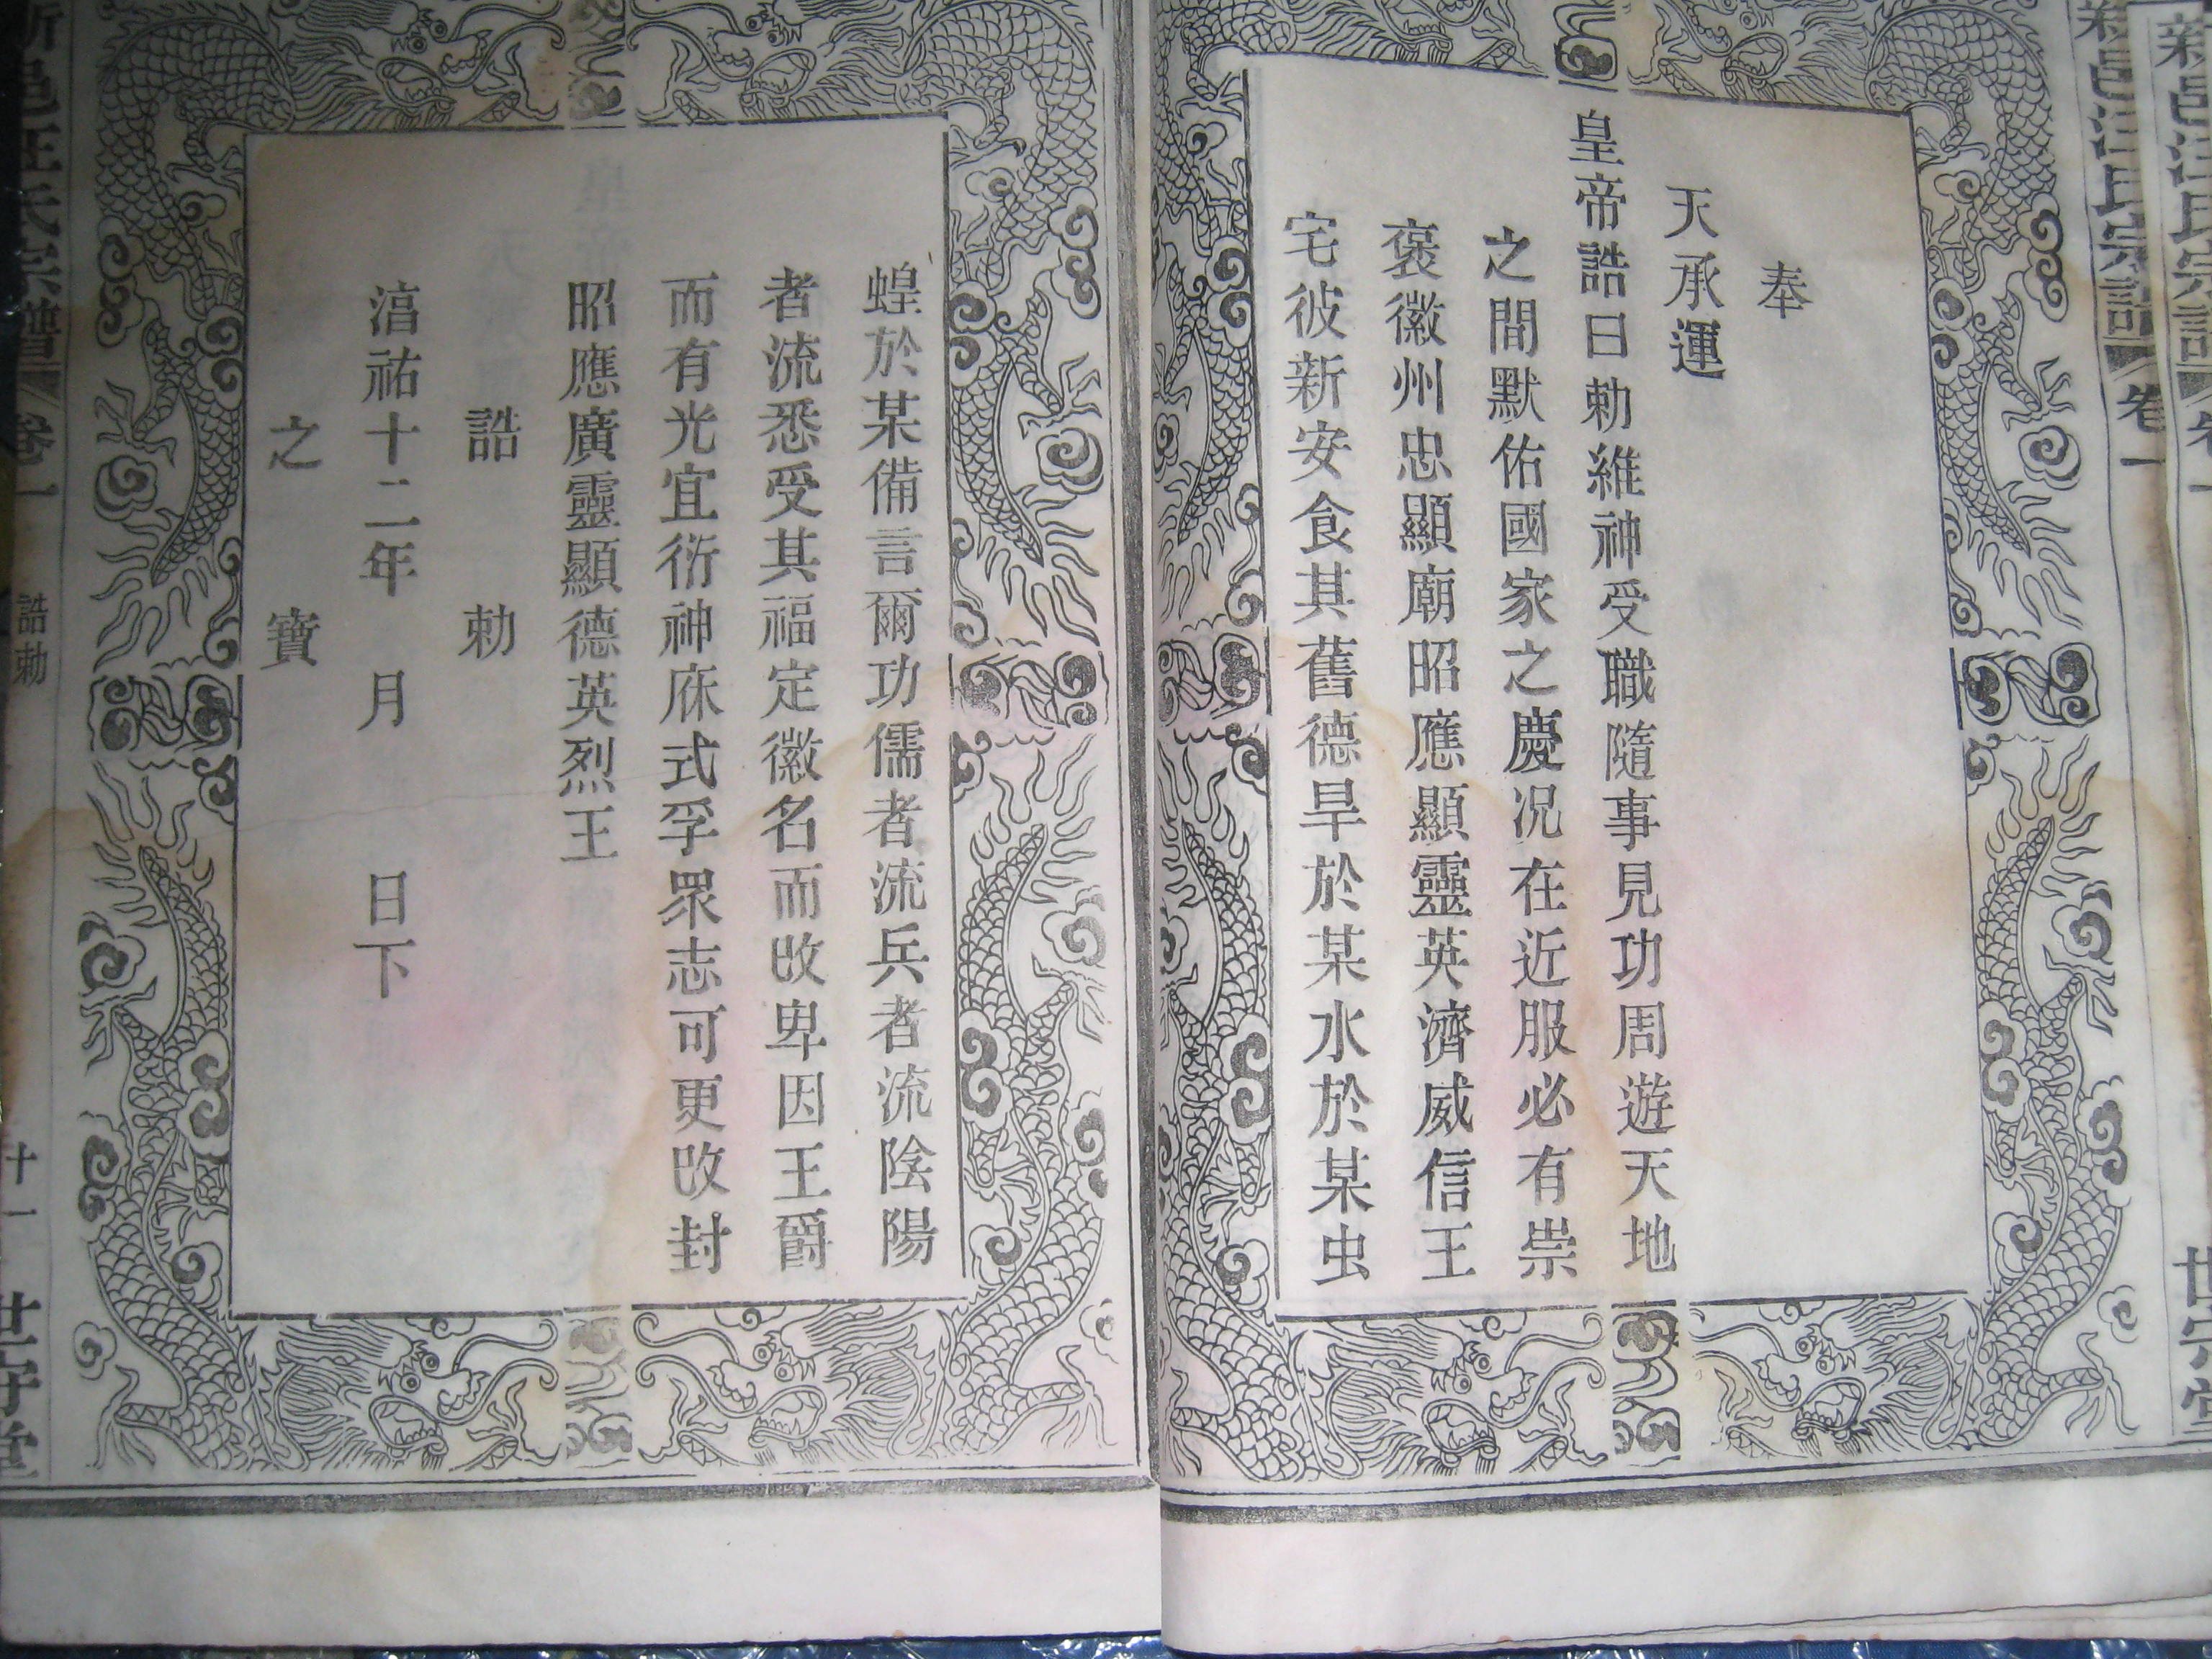 新邑汪氏宗譜
卷一
奉
天承運
皇帝誥曰勅維神受職隨事見功周遊天地
之間默佑國家之慶况在近服必有崇
褒徽州忠顯廟昭應顯靈英濟威信王
宅彼新安食其舊德旱於某水於某虫
蝗於某備言爾功儒者流兵者流陰陽
者流悉受其福定徽名而攺卑因王爵
而有光宜衍神庥式孚眾志可更攺封
昭應廣靈顯德英烈王
誥 勅
淯祐十二年 月 日下
之 寶
汪氏宗譜
卷一
誥勅
十一
世守堂